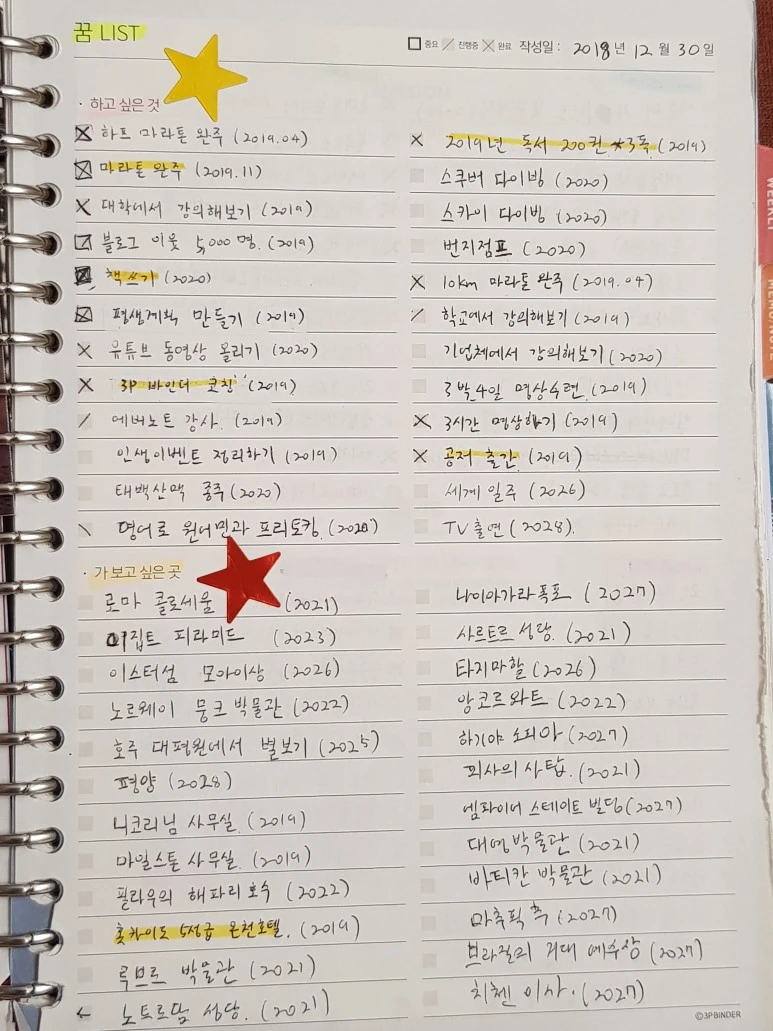 꿈 LIST
중요 진행중 완료 작성일 : 2018 년 12 월 30 일
· 하고 싶은 것
하프 마라톤 완주 (2019.04)
마라톤 완주 (2019.11)
대학에서 강의해보기 (2019)
블로그 이웃 5,000명. (2019)
책쓰기 (2020)
평생계획 만들기 (2019)
유튜브 동영상 올리기 (2020)
3P 바인더 코칭 (2019)
에버노트 강사. (2019)
인생이벤트 정리하기 (2019)
태백산맥 종주 (2020)
영어로 원어민과 프리토킹. (2020)
2019년 독서 200권 *3독. (2019)
스쿠버 다이빙 (2020)
스카이 다이빙 (2020)
번지점프 (2020)
10km 마라톤 완주 (2019.04)
학교에서 강의해보기 (2019)
기업체에서 강의해보기 (2020)
3박 4일 명상수련. (2019)
3시간 명상하기 (2019)
공저 출간. (2019)
세계 일주 (2026)
TV 출연 (2028).
· 가보고 싶은 곳
로마 콜로세움 (2021)
이집트 피라미드 (2023)
이스터섬 모아이상 (2026)
노르웨이 뭉크 박물관 (2022)
호주 대평원에서 별보기 (2025)
평양 (2028)
니코리님 사무실. (2019)
마일스톤 사무실. (2019)
필라우의 해파리 호수 (2022)
홋카이도 5성급 온천호텔. (2019)
루브르 박물관 (2021)
노트르담 성당. (2021)
나이아가라 폭포 (2027)
샤르트르 성당. (2021)
타지마할 (2026)
앙코르와트 (2022)
하기야 소피아 (2027)
피사의 사탑. (2021)
엠파이어 스테이트 빌딩 (2027)
대영박물관 (2021)
바티칸 박물관 (2021)
마추픽추 (2027)
브라질의 거대 예수상 (2027)
치첸 이사. (2027)
©3PBINDER